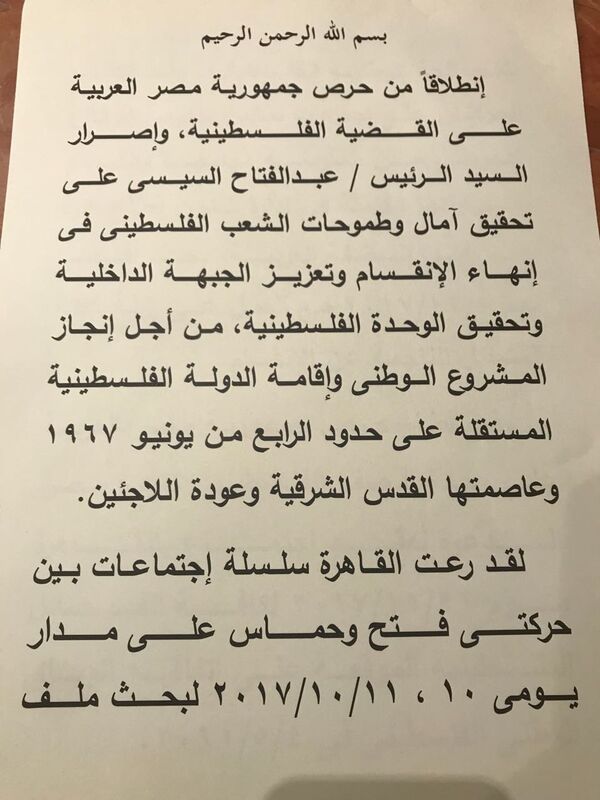 بسم الله الرحمن الرحيم
إنطلاقاً من حرص جمهورية مصر العربية
على القضية الفلسطينية، وإصرار
السيد الرئيس / عبدالفتاح السيسى على
تحقيق آمال وطموحات الشعب الفلسطينى فى
إنهاء الإنقسام وتعزيز الجبهة الداخلية
وتحقيق الوحدة الفلسطينية، من أجل إنجاز
المشروع الوطنى وإقامة الدولة الفلسطينية
المستقلة على حدود الرابع من يونيو ١٩٦٧
وعاصمتها القدس الشرقية وعودة اللاجئين.
لقد رعت القاهرة سلسلة إجتماعات بين
حركتى فتح وحماس على مدار
يومى ١٠ ، ٢٠١٧/١٠/١١ لبحث ملف